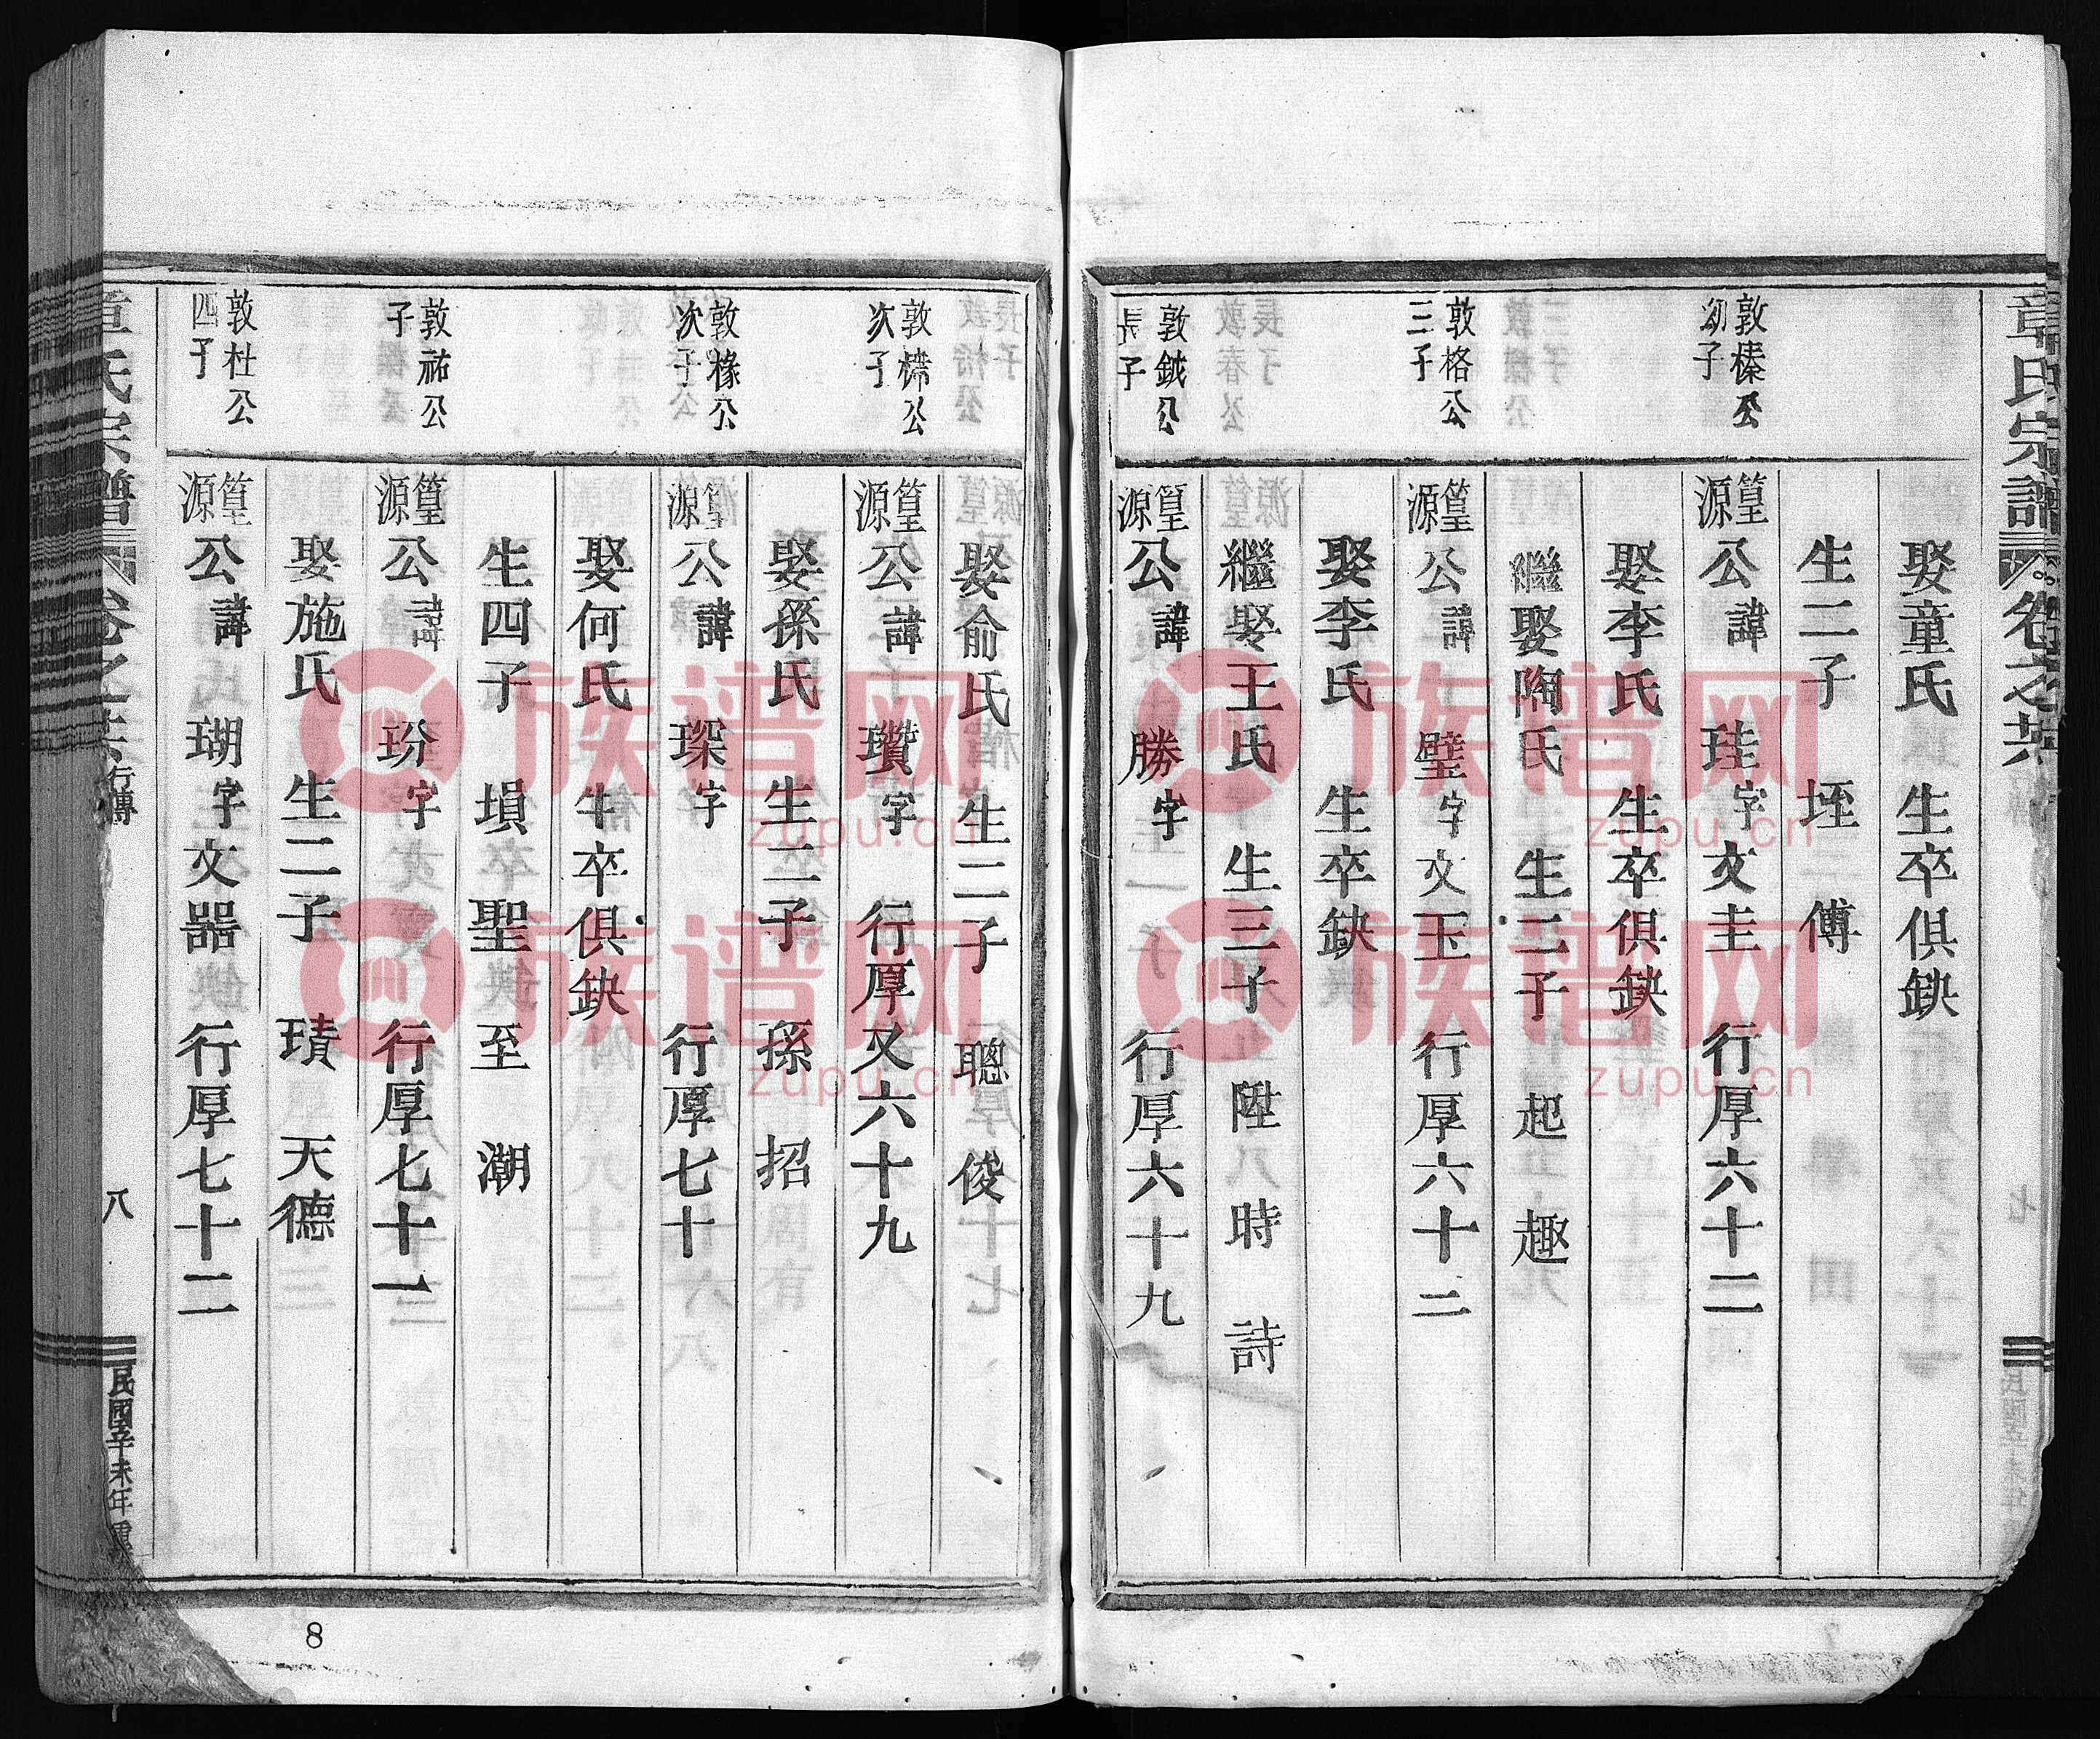 章氏宗譜
卷之
娶童氏 生卒俱缺
生二子 垤 傅
敦榛公幼子
篁源公諱珪字文圭 行厚六十二
娶李氏 生卒俱缺
繼娶陶氏 生二子 起 趣
敦格公三子
篁源公諱璧字文玉 行厚六十二
娶李氏 生卒缺
繼娶王氏 生三子 陞 時 詩
敦鉞公長子
篁源公諱勝字 行厚六十九
娶俞氏 生二子 聰 俊
敦櫋公次子
篁源公諱瓚字 行厚又六十九
娶孫氏 生二子 孫 招
敦椽公次子
篁源公諱琛字 行厚七十
娶何氏 生卒俱缺
生四子 塤 聖 至 潮
敦祐公子
篁源公諱玢字 行厚七十一
娶施氏 生二子 璛 天德
敦杜公四子
篁源公諱瑚字文器 行厚七十二
章氏宗譜
卷之
行傳
八
民國辛未年重
8
族谱网
zupu.cn
族谱网
zupu.cn
族谱网
zupu.cn
族谱网
zupu.cn